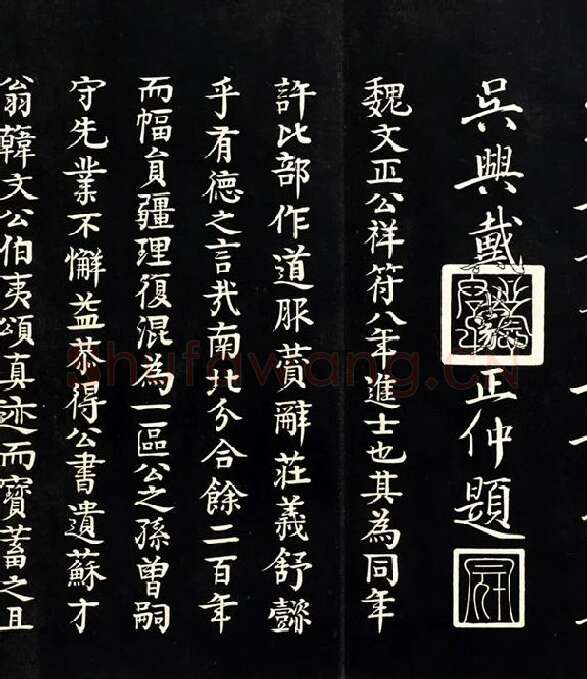 吳興戴正仲題
魏文正公祥符八年進士也其為同年
許比部作道服贊辭莊義舒懿
乎有德之言哉南北分合餘二百年
而幅員疆理復混為一區公之孫曾嗣
守先業不懈益恭得公書遺蘇才
翁韓文公伯夷頌真迹而寶蓄之且
shufawang.CN